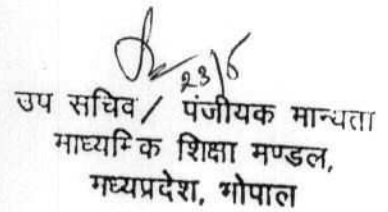 23/6
उप सचिव / पंजीयक मान्यता
माध्यमिक शिक्षा मण्डल,
मध्यप्रदेश, भोपाल